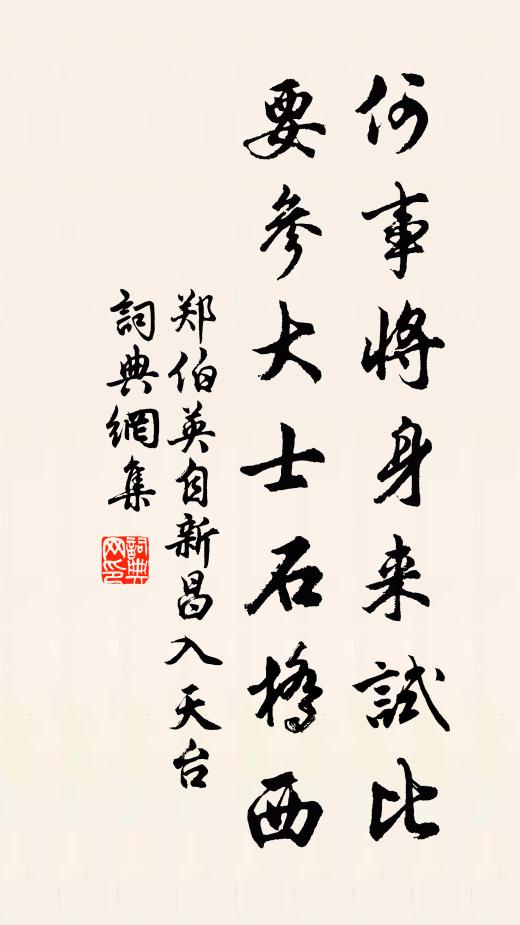 何事將身来試比
要參大士石橋西
郑伯英自新昌入天台
詞典網集
詞典网印